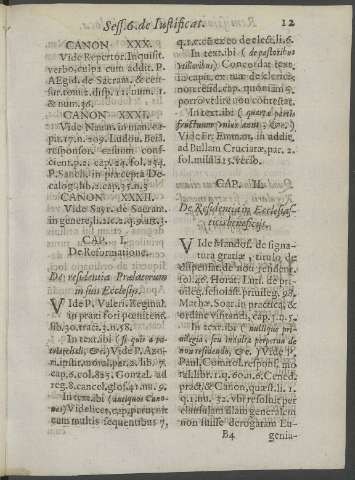 Sess. 6. de Iustificat. 12
CANON XXX.
Vide Repertor. Inquisit.
verbo, culpa cum addit. P.
Ægid. de Sacram. & cen-
sur. tom. 2. disp. 11. num. 1.
& num. 36.
CANON XXXI.
Vide Nauar. in man. ca-
pit. 17. n. 209. Ludou. Beiá.
responsor. casuum cons-
cient. p. 2. cap. 24. fol. 234.
P. Sanch. in præcepta De-
calog. lib. 2. cap. 35. n. 3
CANON XXXII.
Vide Sayr. de Sacram.
in genere, li. 2. c. 2. q. 5. ar. 3.
CAP. I.
De Reformatione.
De residentia Prælatorum
in suis Ecclesijs.
VIde P. Valeri. Reginal.
in praxi fori pœnitent.
lib. 30. tract. 3. n. 58.
In text. ibi (si quis a pa-
triarchali, &c.) Vide P. Azo-
n. instit. moral. par. 2. lib. 7.
cap. 6. col. 825. Gonzal. ad
reg. 8. cancel. glos. 41. nu. 9.
In text. ibi (antiquos Cano-
nes) Videlicet, cap. peruenit
cum multis sequentibus 7,
q. 1. c. cũ ex eo de elect. li. 6.
In text. ibi (de pastoribus
vtilioribus) Concordat text.
in capit. ex tuæ de clericis
non resid. cap. quoniam
porro vel ire non contestat.
In text. ibi (quartæ partis
fructuum vnius anni, &c.)
Vide Fr. Emman. in addit.
ad Bullam Cruciatæ, par. 2.
fol. mihi a 15. verso.
CAP. II.
De Residentia in Ecclesias-
ticis beneficijs.
VIde Mandos. de signa-
tura gratiæ, titulo de
dispensat. de non residend.
fol. 46. Horat. Luti. de pri-
uileg. scholast. priuileg. 98.
Matha. Soar. in practica, &
ordine visitandi, cap. 3. n. 5.
In text. ibi (nullique pri-
uilegij, seu indulta perpetua de
non residendo, &c.) Vide P.
Paul. Comitol. respons. mo-
ral. libr. 1. q. 60. n. 6. Cened.
pract. & Canon, quæst. li. 1.
q. 1. nu. 32. vbi resoluit per
clausulam illam generalem
non fuisse derogatam Eu-
B4 genia-